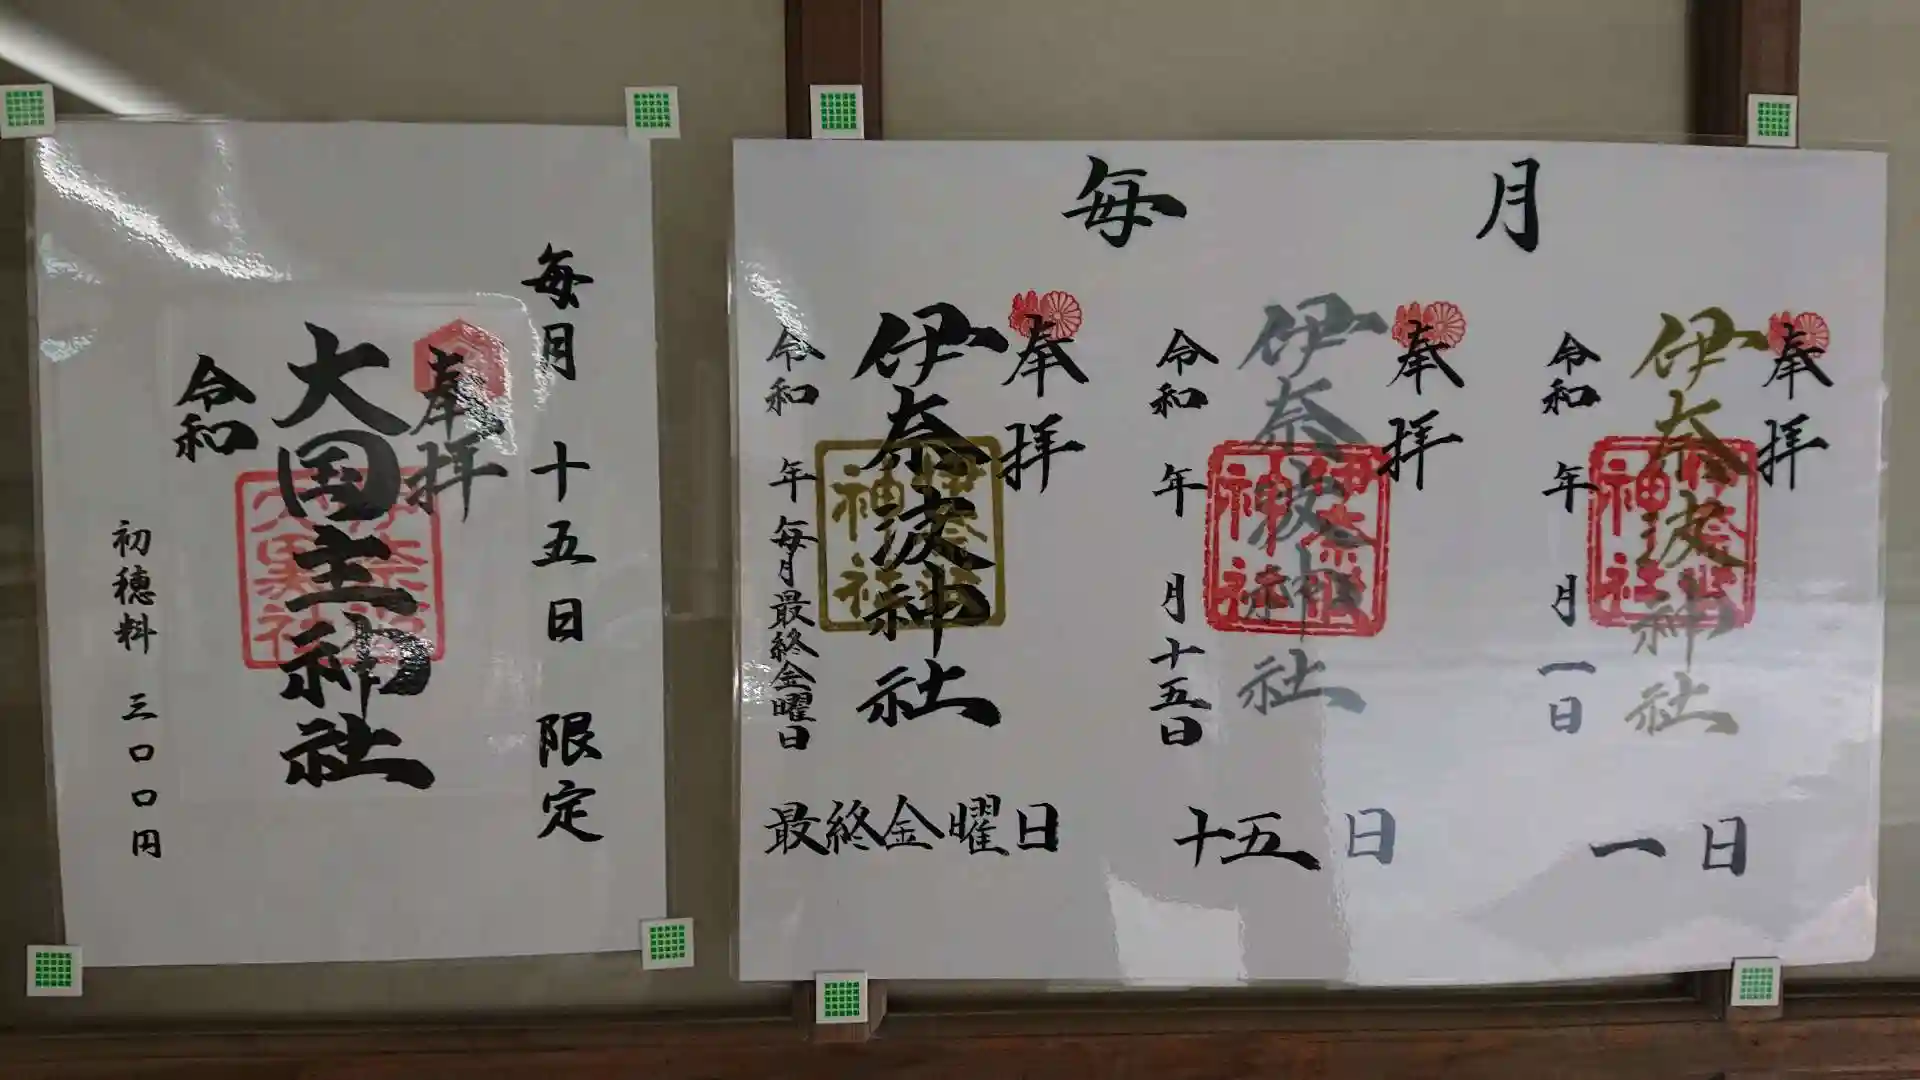 毎月 十五日 限定
奉拝
大国主神社
令和
初穂料 三〇〇円
毎 月
奉拝
伊奈波神社
令和 年 月 一日
一日
奉拝
伊奈波神社
令和 年 月 十五日
十五日
奉拝
伊奈波神社
令和 年 毎月最終金曜日
最終金曜日
伊奈波
神社
伊奈波
神社
伊奈波
神社